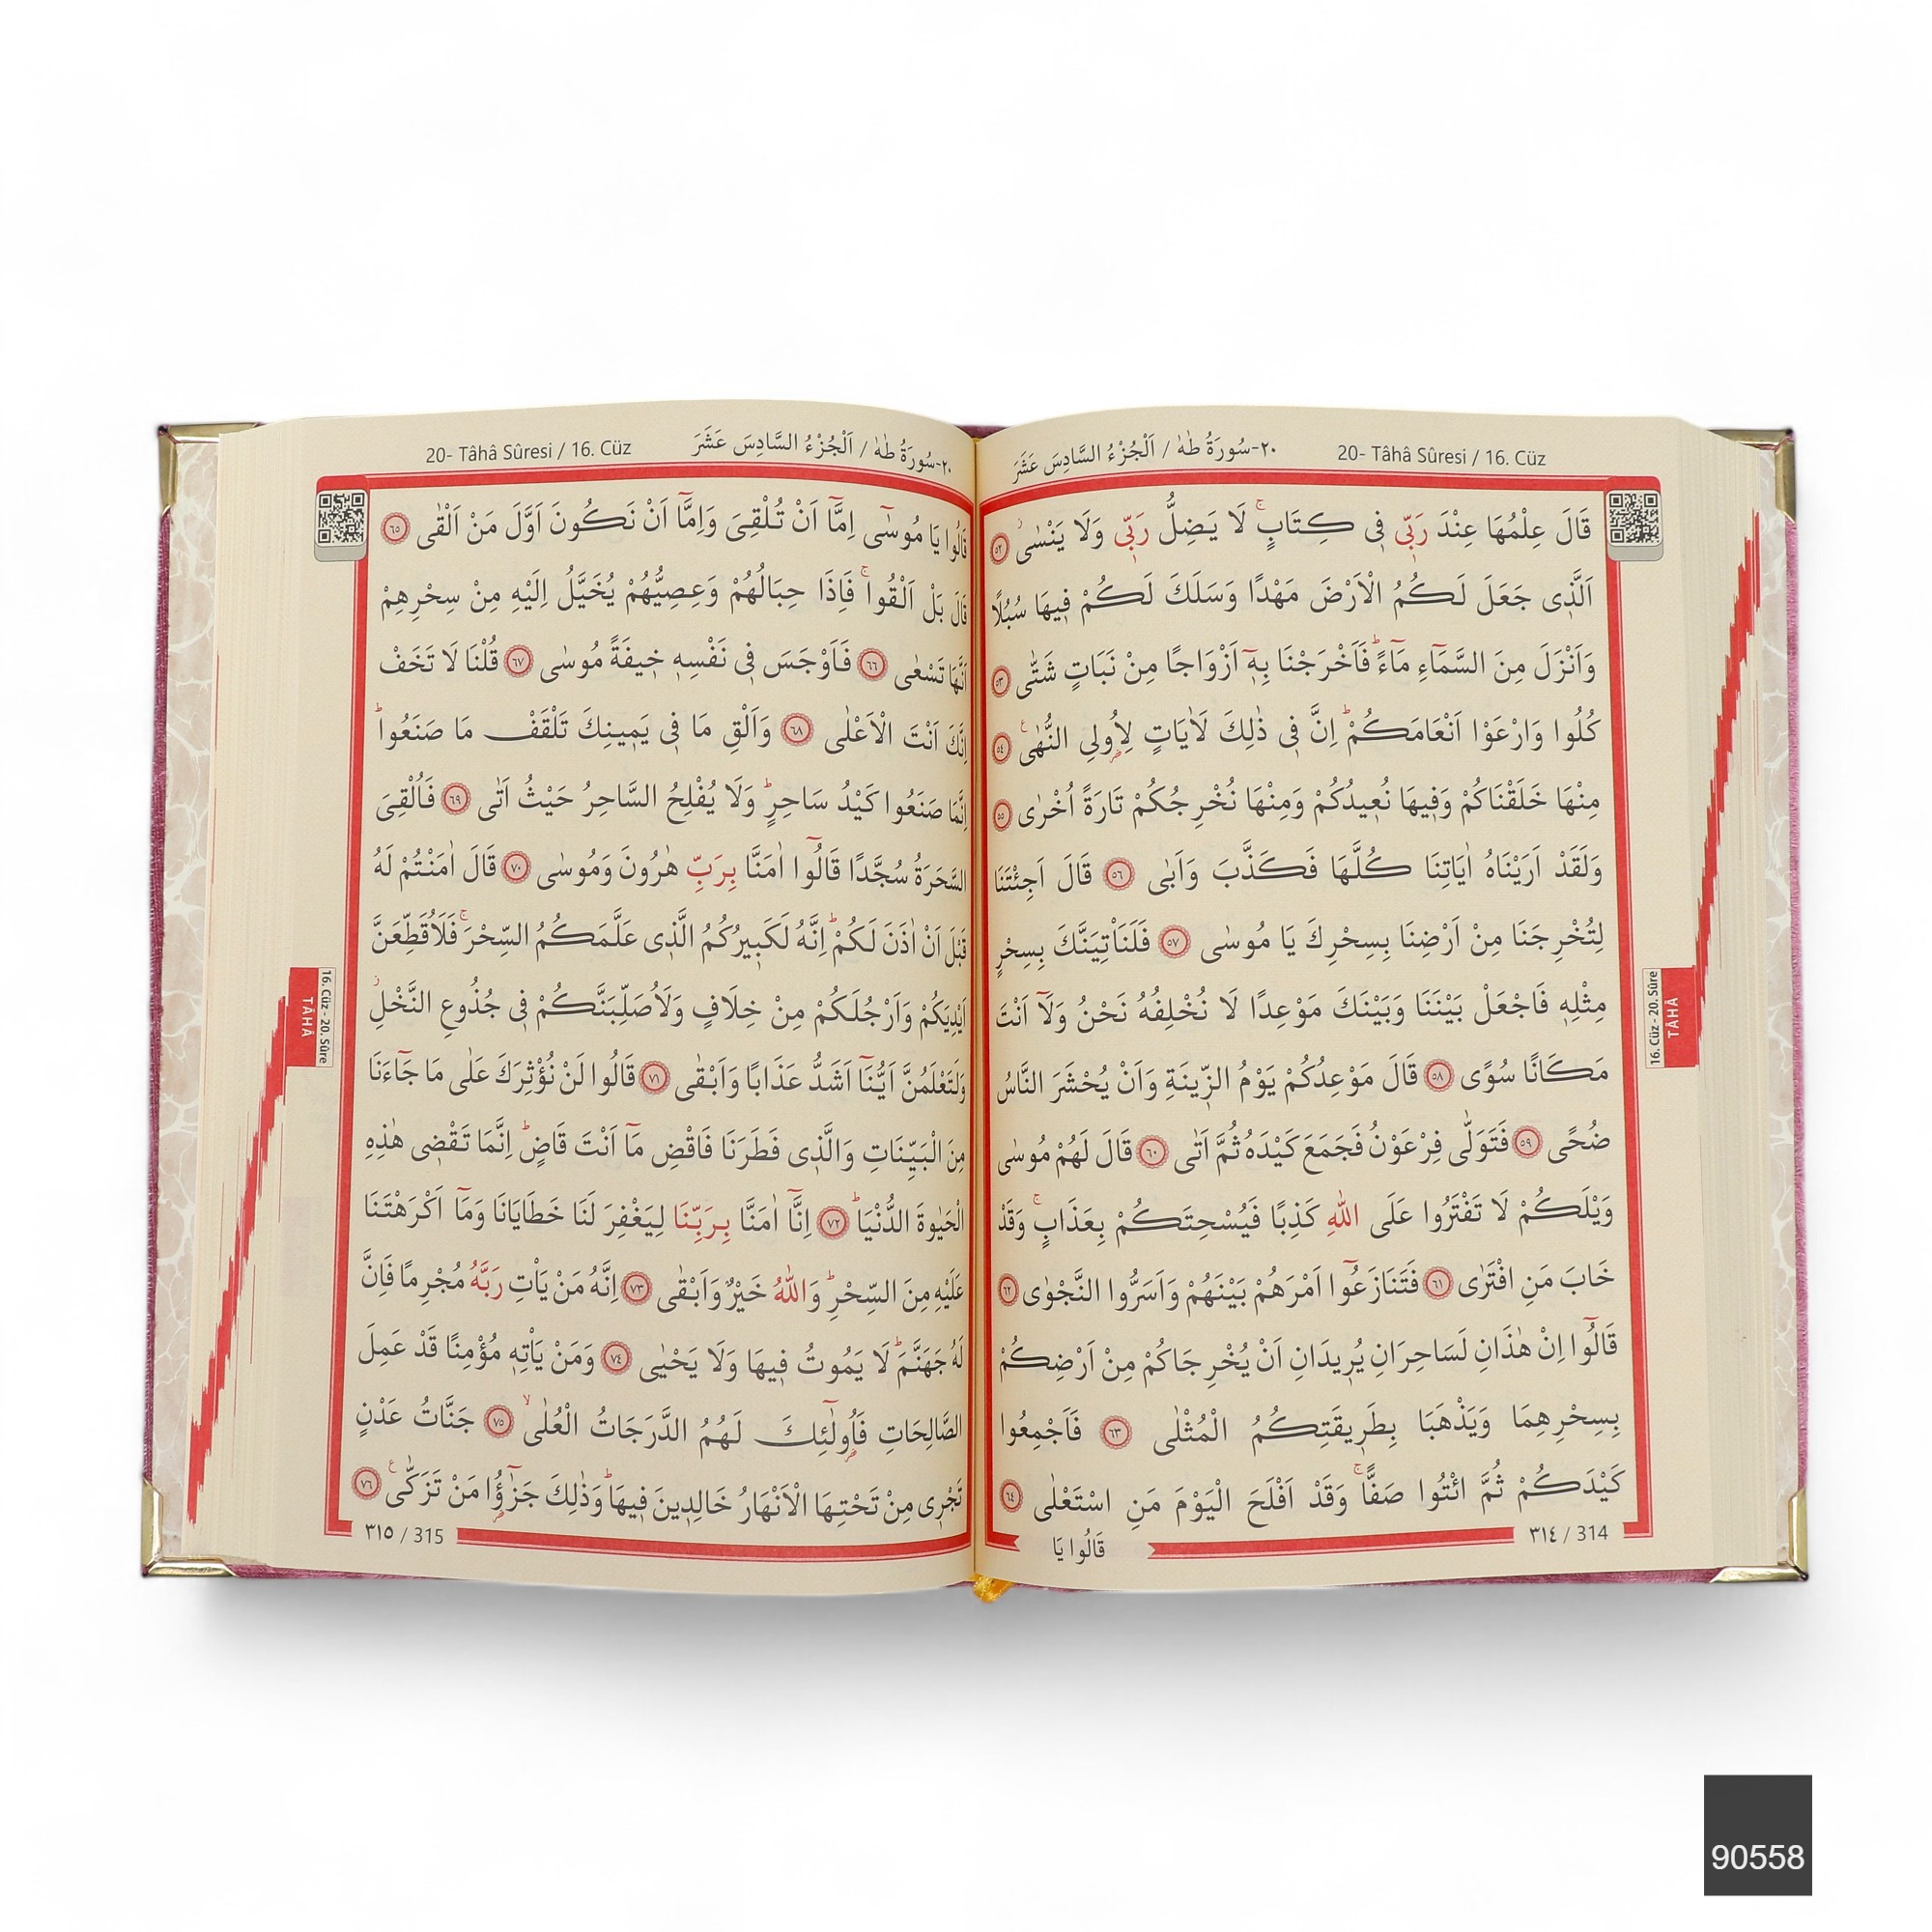 ٢٠-سُورَةُ طٰهٰ / اَلْجُزْءُ السَّادِسَ عَشَرَ 20- Tâhâ Sûresi / 16. Cüz
قَالَ عِلْمُهَا عِنْدَ رَبّ۪ي ف۪ي كِتَابٍۚ لَا يَضِلُّ رَبّ۪ي وَلَا يَنْسٰىۘ ٥٢
اَلَّذ۪ي جَعَلَ لَكُمُ الْاَرْضَ مَهْدًا وَسَلَكَ لَكُمْ ف۪يهَا سُبُلًا
وَاَنْزَلَ مِنَ السَّمَٓاءِ مَٓاءًۜ فَاَخْرَجْنَا بِه۪ٓ اَزْوَاجًا مِنْ نَبَاتٍ شَتّٰى ٥٣
كُلُوا وَارْعَوْا اَنْعَامَكُمْۜ اِنَّ ف۪ي ذٰلِكَ لَاٰيَاتٍ لِاُو۬لِي النُّهٰىۧ ٥٤
مِنْهَا خَلَقْنَاكُمْ وَف۪يهَا نُع۪يدُكُمْ وَمِنْهَا نُخْرِجُكُمْ تَارَةً اُخْرٰى ٥٥
وَلَقَدْ اَرَيْنَاهُ اٰيَاتِنَا كُلَّهَا فَكَذَّبَ وَاَبٰى ٥٦ قَالَ اَجِئْتَنَا
لِتُخْرِجَنَا مِنْ اَرْضِنَا بِسِحْرِكَ يَا مُوسٰى ٥٧ فَلَنَأْتِيَنَّكَ بِسِحْرٍ
مِثْلِه۪ فَاجْعَلْ بَيْنَنَا وَبَيْنَكَ مَوْعِدًا لَا نُخْلِفُهُ نَحْنُ وَلَٓا اَنْتَ
مَكَانًا سُوًى ٥٨ قَالَ مَوْعِدُكُمْ يَوْمُ الزّ۪ينَةِ وَاَنْ يُحْشَرَ النَّاسُ
ضُحًى ٥٩ فَتَوَلّٰى فِرْعَوْنُ فَجَمَعَ كَيْدَهُ ثُمَّ اَتٰى ٦٠ قَالَ لَهُمْ مُوسٰى
وَيْلَكُمْ لَا تَفْتَرُوا عَلَى اللّٰهِ كَذِبًا فَيُسْحِتَكُمْ بِعَذَابٍۚ وَقَدْ
خَابَ مَنِ افْتَرٰى ٦١ فَتَنَازَعُٓوا اَمْرَهُمْ بَيْنَهُمْ وَاَسَرُّوا النَّجْوٰى ٦٢
قَالُٓوا اِنْ هٰذَانِ لَسَاحِرَانِ يُر۪يدَانِ اَنْ يُخْرِجَاكُمْ مِنْ اَرْضِكُمْ
بِسِحْرِهِمَا وَيَذْهَبَا بِطَر۪يقَتِكُمُ الْمُثْلٰى ٦٣ فَاَجْمِعُوا
كَيْدَكُمْ ثُمَّ ائْتُوا صَفًّاۚ وَقَدْ اَفْلَحَ الْيَوْمَ مَنِ اسْتَعْلٰى ٦٤
٣١٤ / 314
قَالُوا يَا
16. Cüz - 20. Sûre
TÂHÂ
٢٠-سُورَةُ طٰهٰ / اَلْجُزْءُ السَّادِسَ عَشَرَ 20- Tâhâ Sûresi / 16. Cüz
قَالُوا يَا مُوسٰٓى اِمَّٓا اَنْ تُلْقِيَ وَاِمَّٓا اَنْ نَكُونَ اَوَّلَ مَنْ اَلْقٰى ٦٥
قَالَ بَلْ اَلْقُواۚ فَاِذَا حِبَالُهُمْ وَعِصِيُّهُمْ يُخَيَّلُ اِلَيْهِ مِنْ سِحْرِهِمْ
اَنَّهَا تَسْعٰى ٦٦ فَاَوْجَسَ ف۪ي نَفْسِه۪ خ۪يفَةً مُوسٰى ٦٧ قُلْنَا لَا تَخَفْ
اِنَّكَ اَنْتَ الْاَعْلٰى ٦٨ وَاَلْقِ مَا ف۪ي يَم۪ينِكَ تَلْقَفْ مَا صَنَعُواۜ
اِنَّمَا صَنَعُوا كَيْدُ سَاحِرٍۜ وَلَا يُفْلِحُ السَّاحِرُ حَيْثُ اَتٰى ٦٩ فَاُلْقِيَ
السَّحَرَةُ سُجَّدًا قَالُٓوا اٰمَنَّا بِرَبِّ هٰرُونَ وَمُوسٰى ٧٠ قَالَ اٰمَنْتُمْ لَهُ
قَبْلَ اَنْ اٰذَنَ لَكُمْۜ اِنَّهُ لَكَب۪يرُكُمُ الَّذ۪ي عَلَّمَكُمُ السِّحْرَۚ فَلَاُقَطِّعَنَّ
اَيْدِيَكُمْ وَاَرْجُلَكُمْ مِنْ خِلَافٍ وَلَاُصَلِّبَنَّكُمْ ف۪ي جُذُوعِ النَّخْلِۘ
وَلَتَعْلَمُنَّ اَيُّنَٓا اَشَدُّ عَذَابًا وَاَبْقٰى ٧١ قَالُوا لَنْ نُؤْثِرَكَ عَلٰى مَا جَٓاءَنَا
مِنَ الْبَيِّنَاتِ وَالَّذ۪ي فَطَرَنَا فَاقْضِ مَٓا اَنْتَ قَاضٍۜ اِنَّمَا تَقْض۪ي هٰذِهِ
الْحَيٰوةَ الدُّنْيَاۜ ٧٢ اِنَّٓا اٰمَنَّا بِرَبِّنَا لِيَغْفِرَ لَنَا خَطَايَانَا وَمَٓا اَكْرَهْتَنَا
عَلَيْهِ مِنَ السِّحْرِۜ وَاللّٰهُ خَيْرٌ وَاَبْقٰى ٧٣ اِنَّهُ مَنْ يَأْتِ رَبَّهُ مُجْرِمًا فَاِنَّ
لَهُ جَهَنَّمَۜ لَا يَمُوتُ ف۪يهَا وَلَا يَحْيٰى ٧٤ وَمَنْ يَأْتِه۪ مُؤْمِنًا قَدْ عَمِلَ
الصَّالِحَاتِ فَاُو۬لٰٓئِكَ لَهُمُ الدَّرَجَاتُ الْعُلٰىۙ ٧٥ جَنَّاتُ عَدْنٍ
تَجْر۪ي مِنْ تَحْتِهَا الْاَنْهَارُ خَالِد۪ينَ ف۪يهَاۜ وَذٰلِكَ جَزٰٓؤُ۬ا مَنْ تَزَكّٰىۧ ٧٦
٣١٥ / 315
16. Cüz - 20. Sûre
TÂHÂ
90558